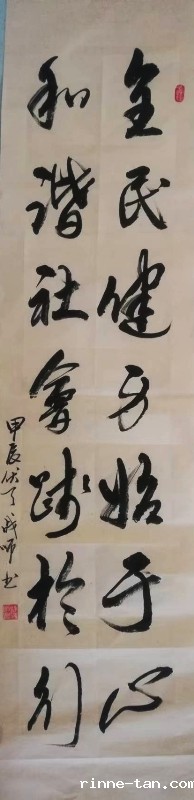 全民健身始于心
和谐社會践於行
甲辰伏了
书
rinne-tan.com